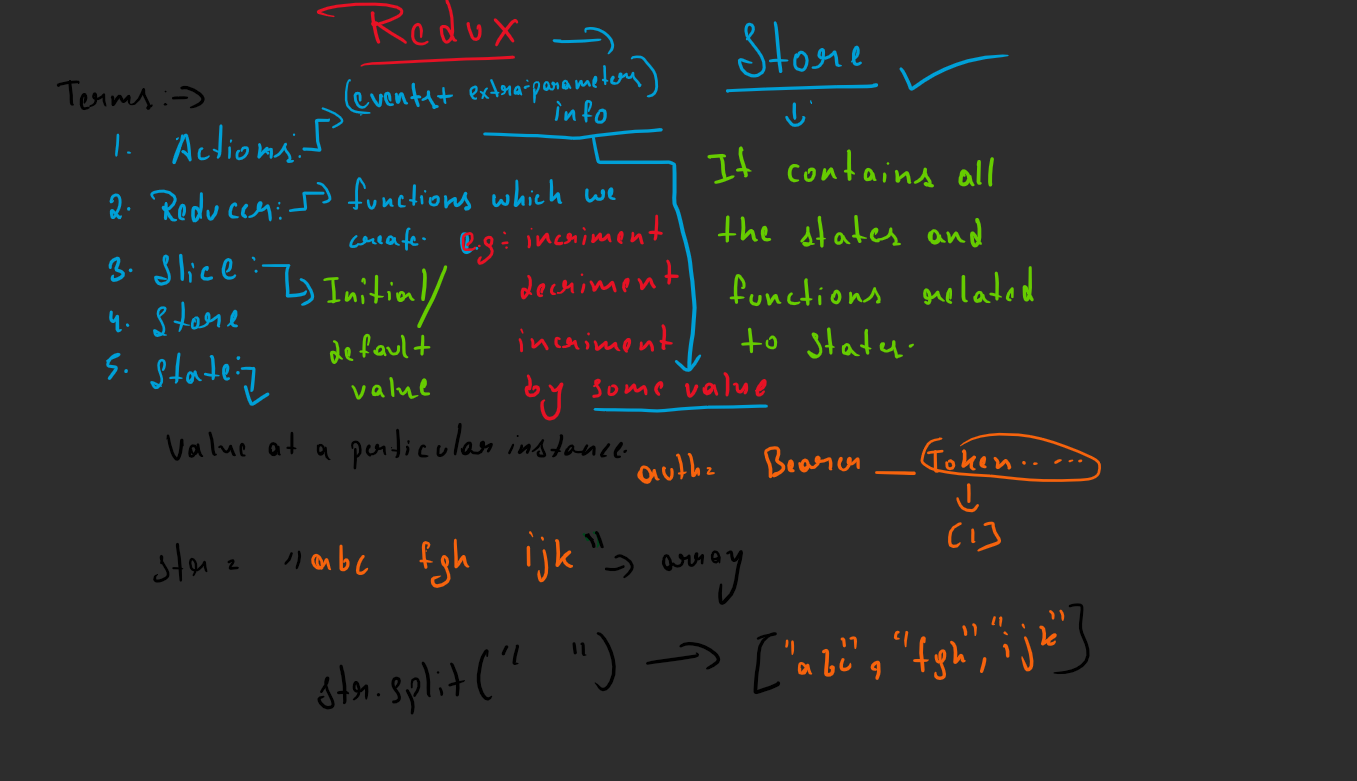 Redux → Store ✓
Terms:→
(events+ extra-parameters)
info
1. Actions:
2. Reducer: → functions which we
create. e.g:- incriment
decriment
incriment
by some value
3. Slice: → Initial/
default
value
4. Store
5. State:
Value at a particular instance.
It contains all
the states and
functions related
to states.
auth= Bearer __ Token.....
[1]
str = "abc fgh ijk" → array
str.split(" ") → ["abc", "fgh", "ijk"]